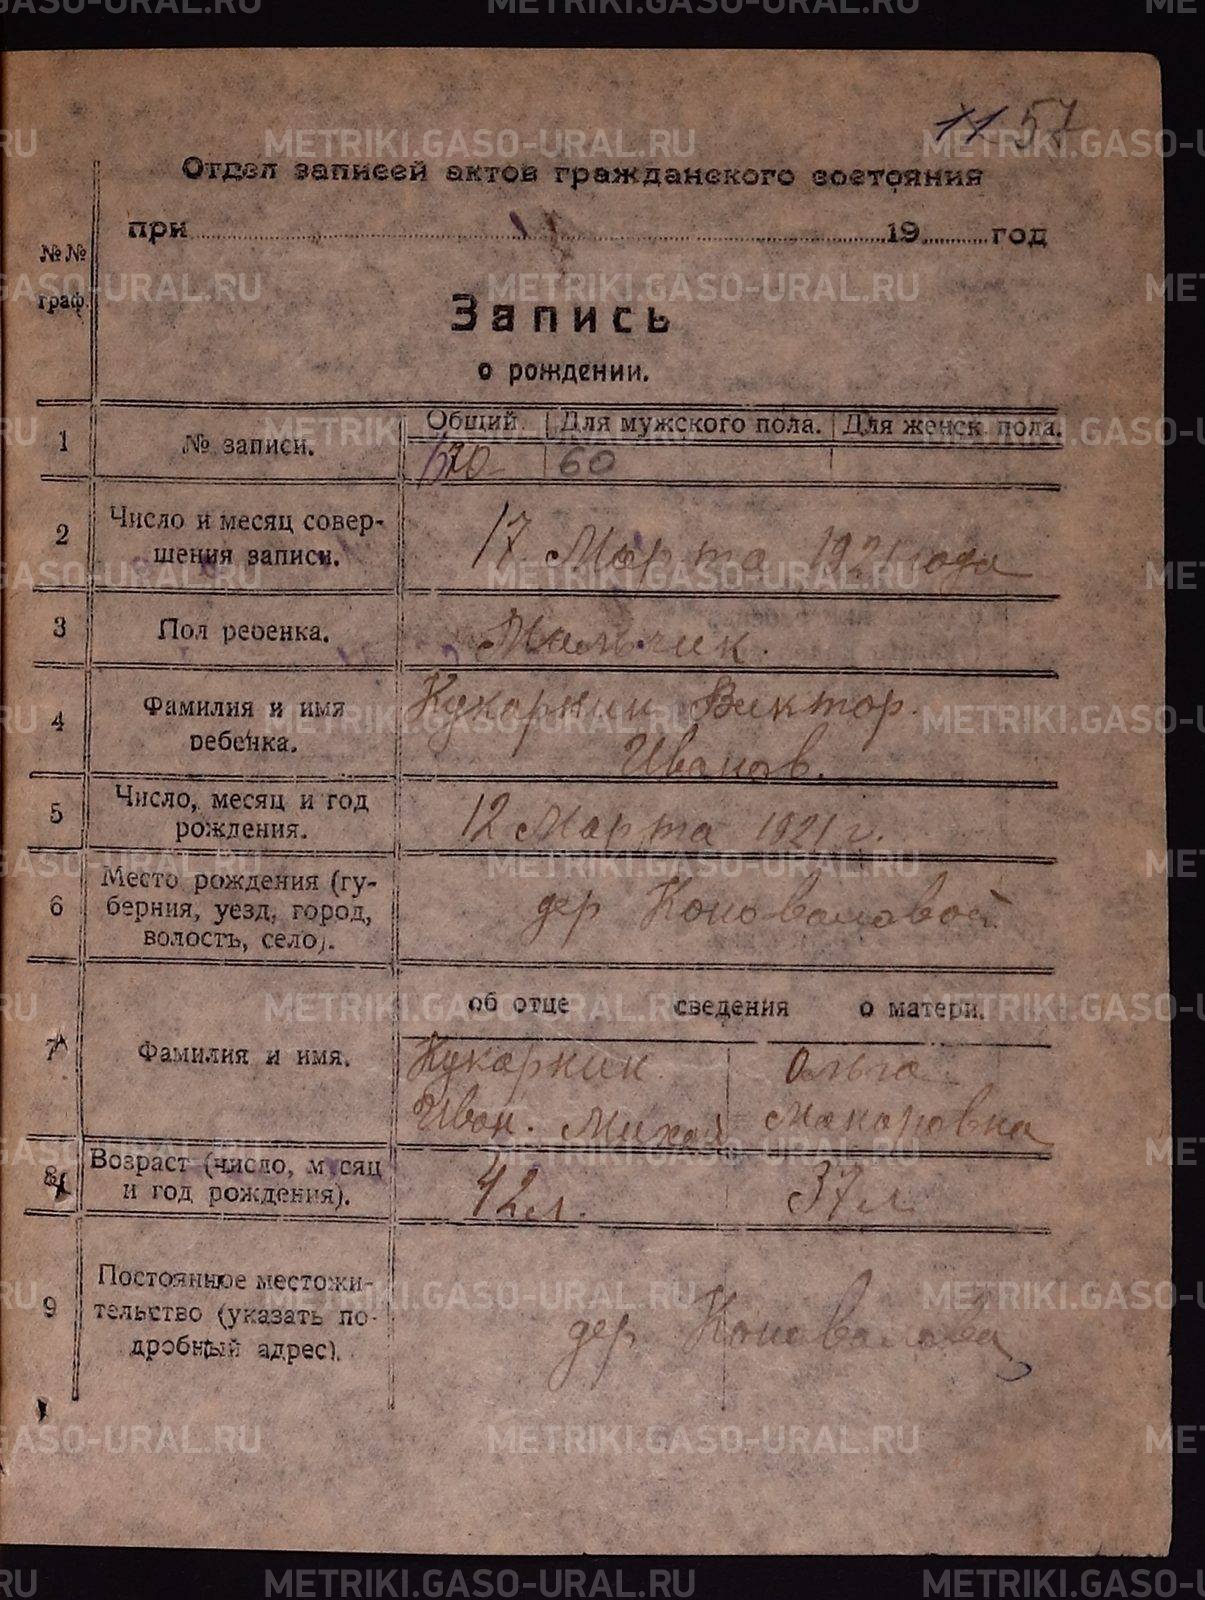 57
Отдел записей актов гражданского состояния
при 19 год
№№
граф.
Запись
о рождении.
Общий. Для мужского пола. Для женск пола.
1 № записи. 60
2 Число и месяц совер-
шения записи.
17 Марта 1921 года
3 Пол ребенка. Мальчик.
4 Фамилия и имя
ребенка.
Кукаркин Виктор.
Иванов.
5 Число, месяц и год
рождения.
12 Марта 1921 г.
6 Место рождения (гу-
берния, уезд, город,
волость, село).
дер Коноваловой
об отце сведения о матери.
7 Фамилия и имя.
Кукаркин Ольга
Иван. Михай Макаровна
8 Возраст (число, м сяц
и год рождения).
42 л. 37 л
9 Постоянное местожи-
тельство (указать по-
дробный адрес).
дер Коновалова
METRIKI.GASO-URAL.RU